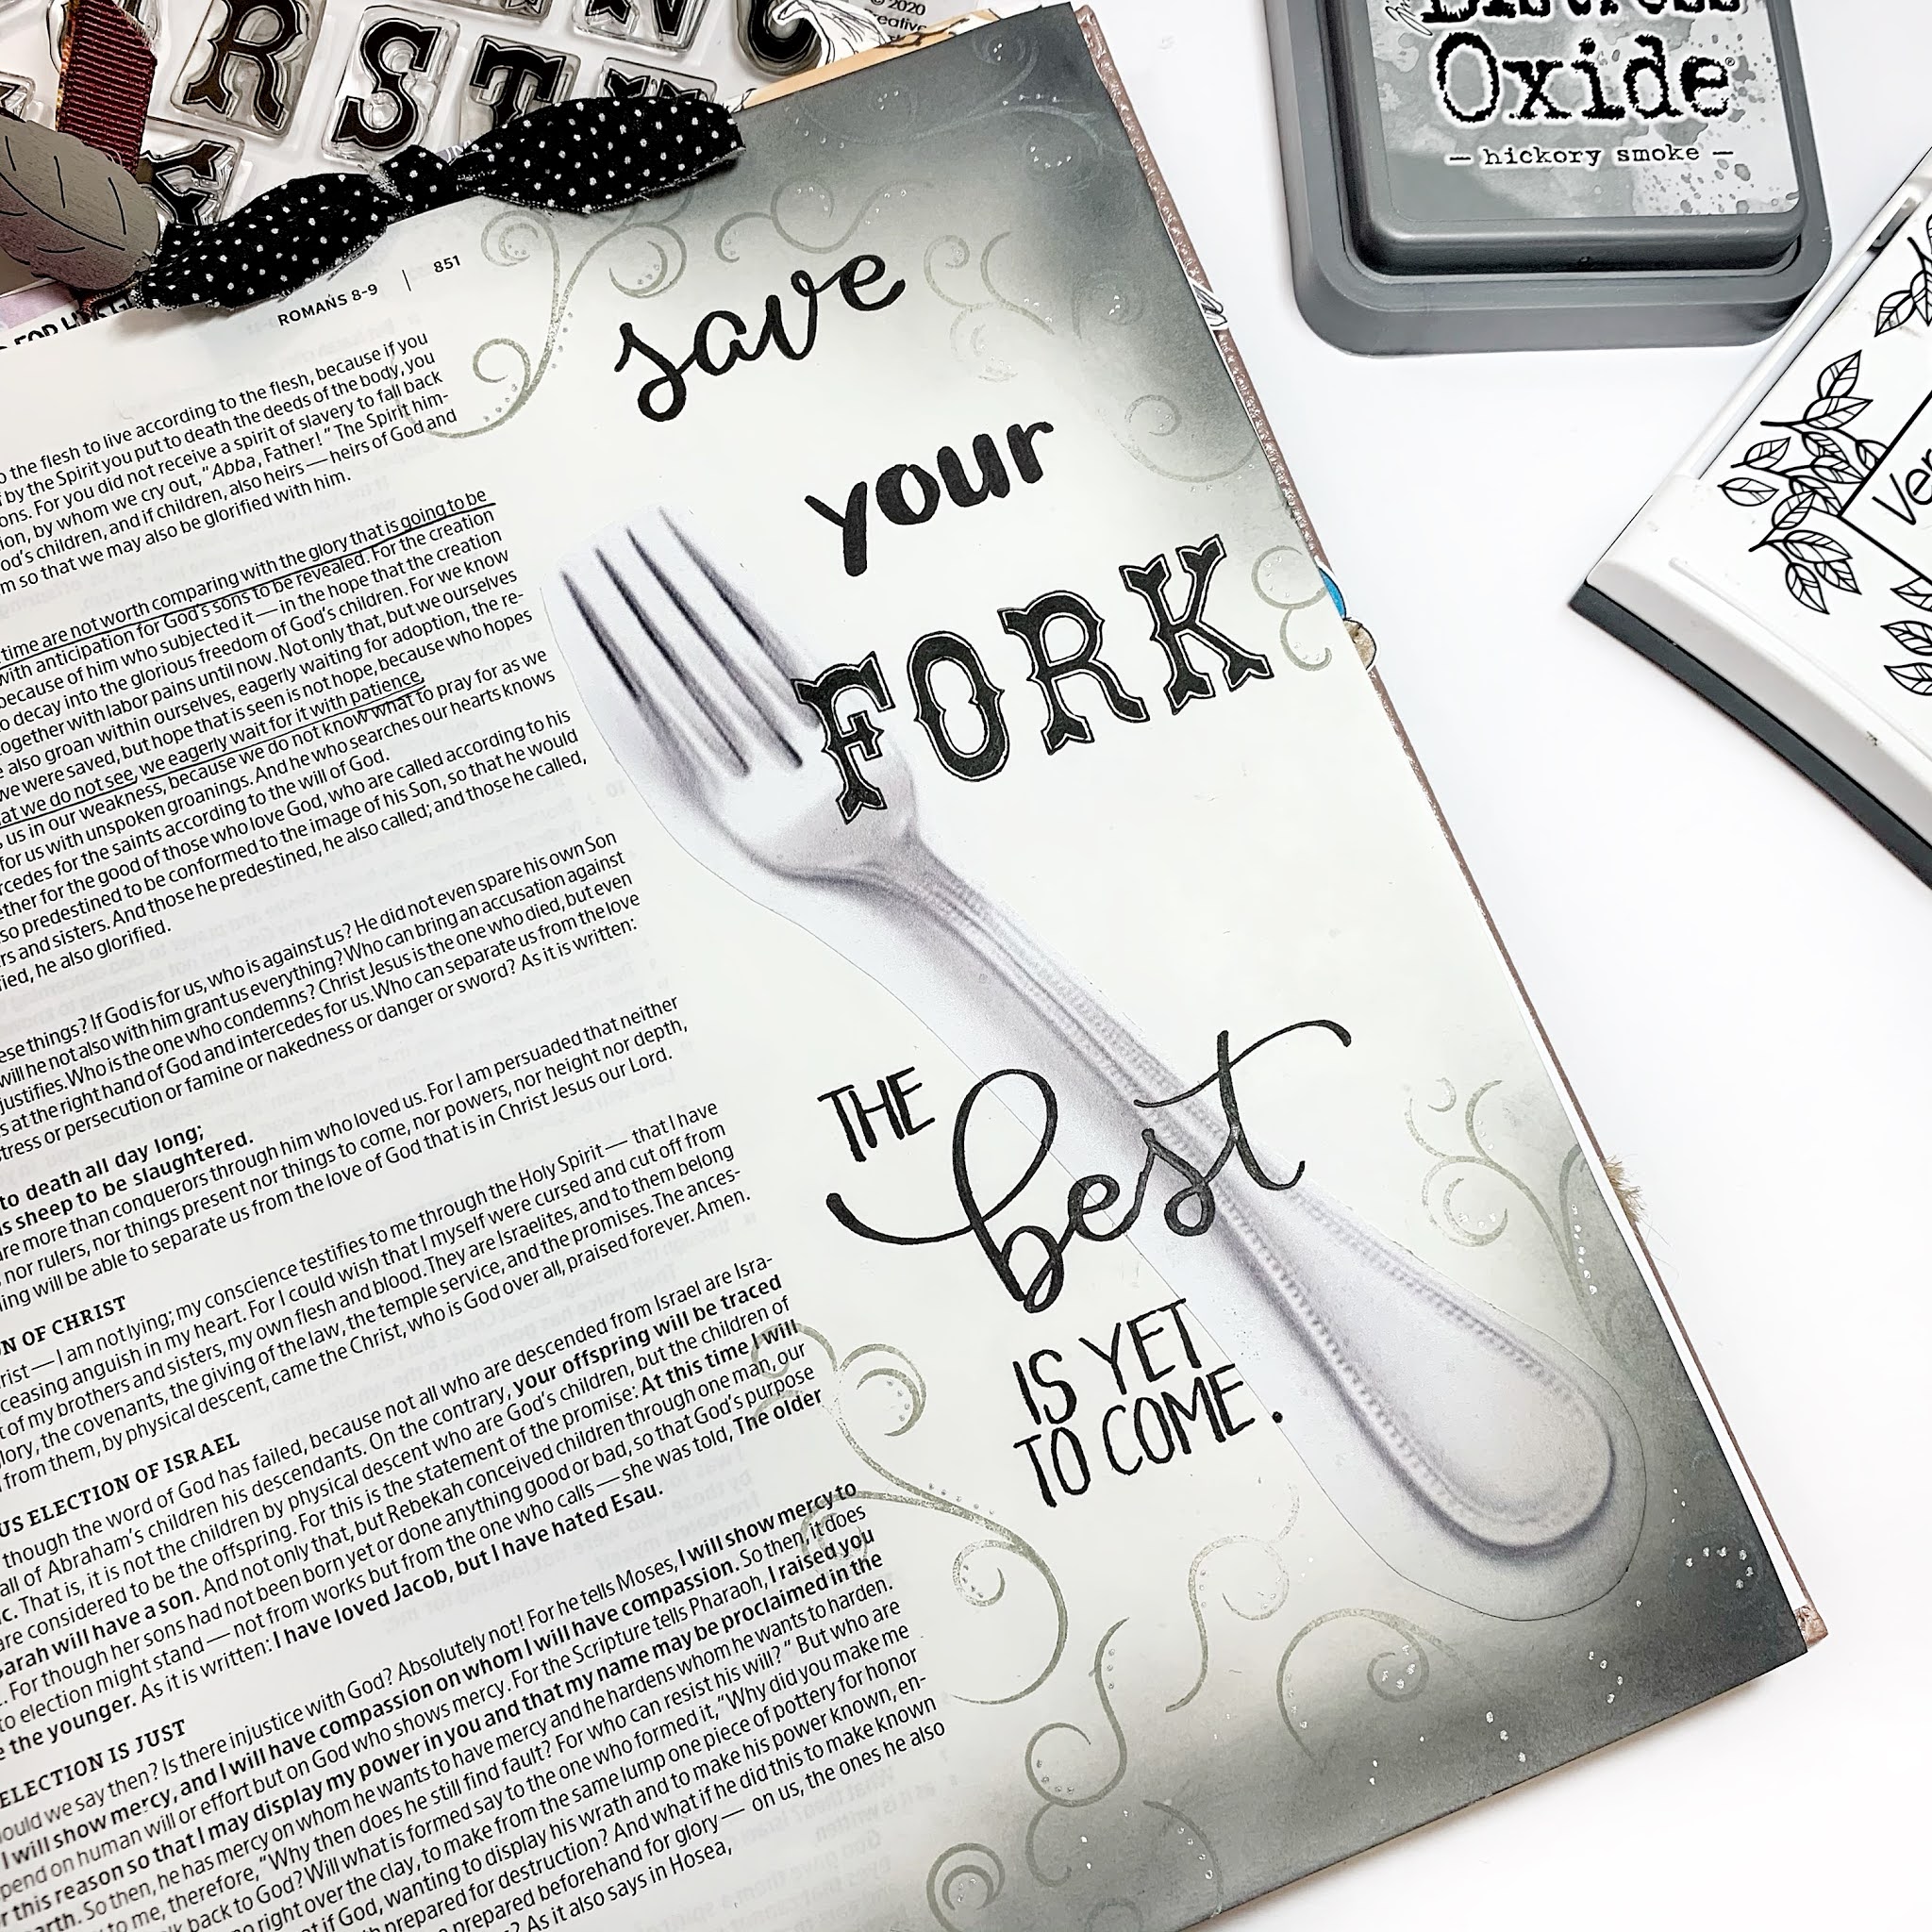 R S T
© 2020
Distress
Oxide
— hickory smoke —
ROMANS 8-9 | 851
save
your
FORK
THE
best
IS YET
TO COME.
the flesh to live according to the flesh, because if you
by the Spirit you put to death the deeds of the body, you
ons. For you did not receive a spirit of slavery to fall back
ion, by whom we cry out, "Abba, Father!" The Spirit him-
od's children, and if children, also heirs — heirs of God and
m so that we may also be glorified with him.
time are not worth comparing with the glory that is going to be
with anticipation for God's sons to be revealed. For the creation
because of him who subjected it — in the hope that the creation
o decay into the glorious freedom of God's children. For we know
together with labor pains until now. Not only that, but we ourselves
also groan within ourselves, eagerly waiting for adoption, the re-
we were saved, but hope that is seen is not hope, because who hopes
at we do not see, we eagerly wait for it with patience.
us in our weakness, because we do not know what to pray for as we
for us with unspoken groanings. And he who searches our hearts knows
rcedes for the saints according to the will of God.
ether for the good of those who love God, who are called according to his
so predestined to be conformed to the image of his Son, so that he would
rs and sisters. And those he predestined, he also called; and those he called,
fied, he also glorified.
ese things? If God is for us, who is against us? He did not even spare his own Son
will he not also with him grant us everything? Who can bring an accusation against
justifies. Who is the one who condemns? Christ Jesus is the one who died, but even
s at the right hand of God and intercedes for us. Who can separate us from the love
tress or persecution or famine or nakedness or danger or sword? As it is written:
to death all day long;
s sheep to be slaughtered.
are more than conquerors through him who loved us. For I am persuaded that neither
nor rulers, nor things present nor things to come, nor powers, nor height nor depth,
ing will be able to separate us from the love of God that is in Christ Jesus our Lord.
N OF CHRIST
rist — I am not lying; my conscience testifies to me through the Holy Spirit — that I have
ceasing anguish in my heart. For I could wish that I myself were cursed and cut off from
t of my brothers and sisters, my own flesh and blood. They are Israelites, and to them belong
glory, the covenants, the giving of the law, the temple service, and the promises. The ances-
from them, by physical descent, came the Christ, who is God over all, praised forever. Amen.
US ELECTION OF ISRAEL
though the word of God has failed, because not all who are descended from Israel are Isra-
all of Abraham's children his descendants. On the contrary, your offspring will be traced
c. That is, it is not the children by physical descent who are God's children, but the children of
are considered to be the offspring. For this is the statement of the promise: At this time I will
Sarah will have a son. And not only that, but Rebekah conceived children through one man, our
. For though her sons had not been born yet or done anything good or bad, so that God's purpose
to election might stand — not from works but from the one who calls — she was told, The older
e the younger. As it is written: I have loved Jacob, but I have hated Esau.
ELECTION IS JUST
ould we say then? Is there injustice with God? Absolutely not! For he tells Moses, I will show mercy to
I will show mercy, and I will have compassion on whom I will have compassion. So then, it does
pend on human will or effort but on God who shows mercy. For the Scripture tells Pharaoh, I raised you
r this reason so that I may display my power in you and that my name may be proclaimed in the
arth. So then, he has mercy on whom he wants to have mercy and he hardens whom he wants to harden.
to me, therefore, "Why then does he still find fault? For who can resist his will?" But who are
lk back to God? Will what is formed say to the one who formed it, "Why did you make me
no right over the clay, to make from the same lump one piece of pottery for honor
t if God, wanting to display his wrath and to make his power known, en-
prepared for destruction? And what if he did this to make known
prepared beforehand for glory — on us, the ones he also
? As it also says in Hosea,